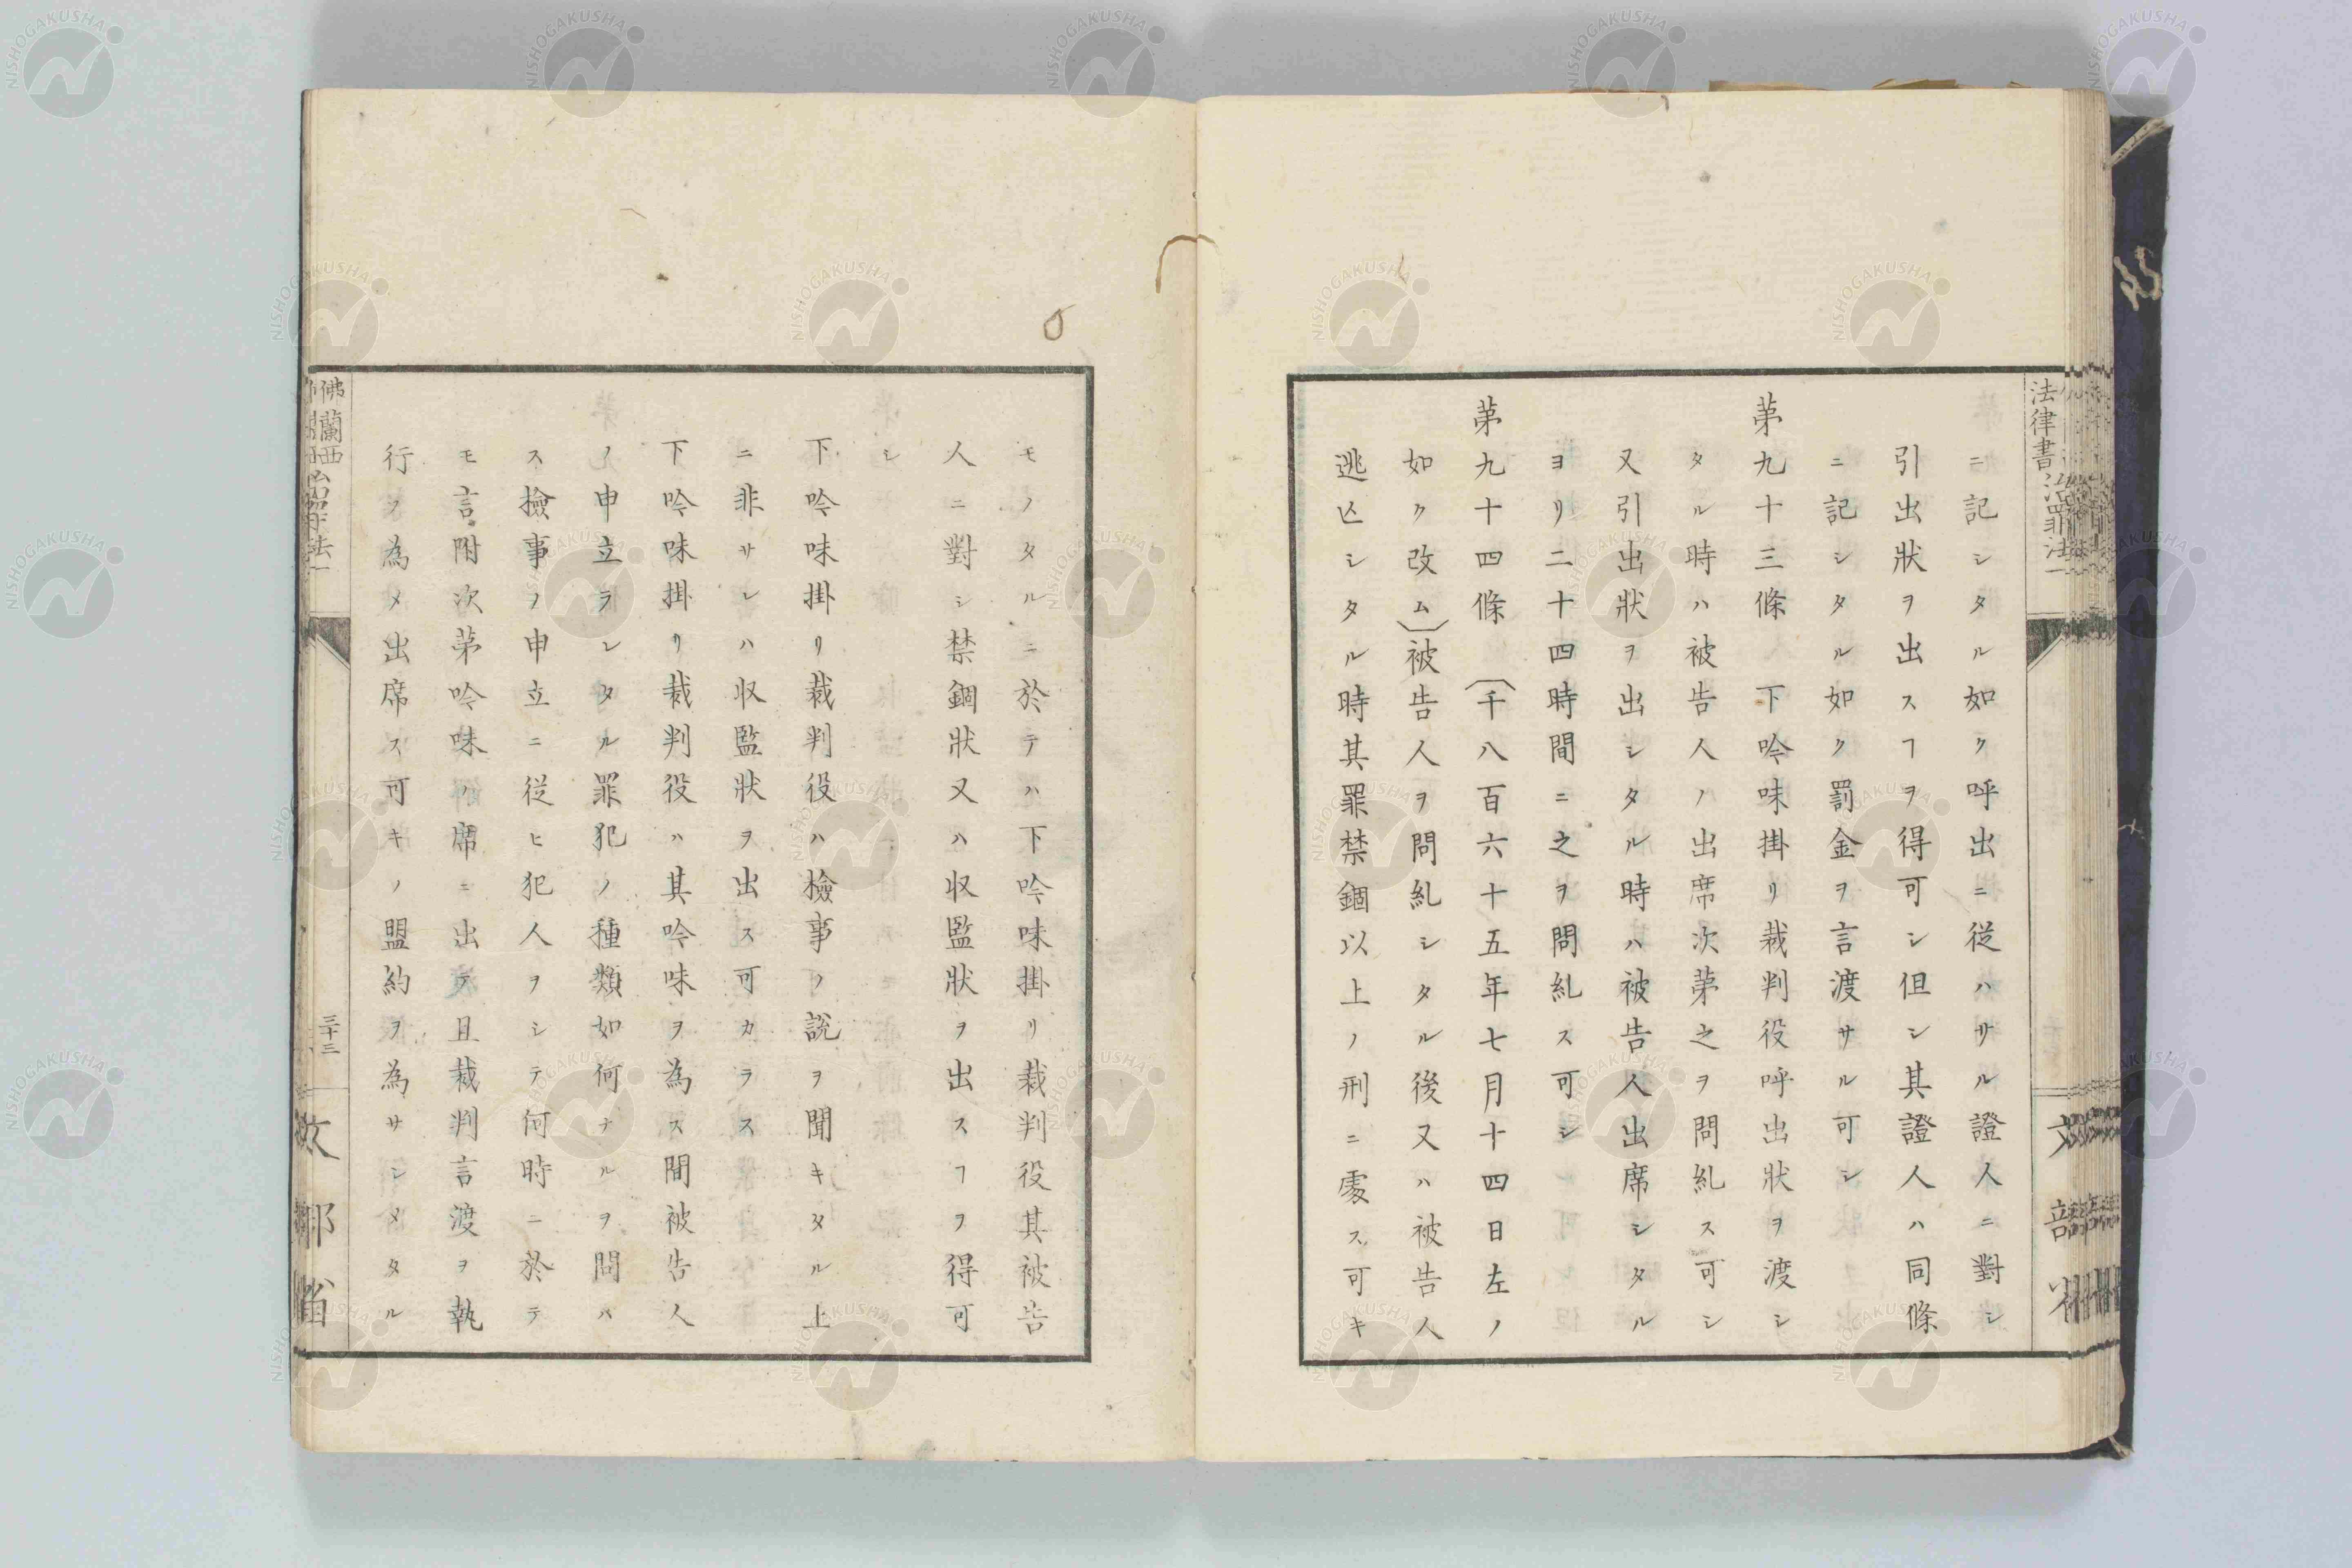 ニ記シタル如ク呼出ニ従ハサル證人ニ對シ
引出狀ヲ出スヿヲ得可シ但シ其證人ハ同條
ニ記シタル如ク罰金ヲ言渡サル可シ
第九十三條 下吟味掛リ裁判役呼出狀ヲ渡シ
タル時ハ被告人ノ出席次第之ヲ問糺ス可シ
又引出狀ヲ出シタル時ハ被告人出席シタル
ヨリ二十四時間ニ之ヲ問糺ス可シ
第九十四條 (千八百六十五年七月十四日左ノ
如ク改ム)被告人ヲ問糺シタル後又ハ被告人
逃亡シタル時其罪禁錮以上ノ刑ニ處ス可キ
モノタルニ於テハ下吟味掛リ裁判役其被告
人ニ對シ禁錮狀又ハ収監狀ヲ出スヿヲ得可
シ
下吟味掛リ裁判役ハ檢事ノ說ヲ聞キタル上
ニ非サレハ収監狀ヲ出ス可カラス
下吟味掛リ裁判役ハ其吟味ヲ為ス間被告人
ノ申立ラレタル罪犯ノ種類如何ナルヲ問ハ
ス檢事ヲ申立ニ従ヒ犯人ヲシテ何時ニ於テ
モ言附次第吟味ノ席ニ出テ且裁判言渡ヲ執
行ヲ為メ出席ス可キノ盟約ヲ為サシメタル
法律書
治罪法一
佛蘭西
三十三
文部省
NISHOGAKUSHA